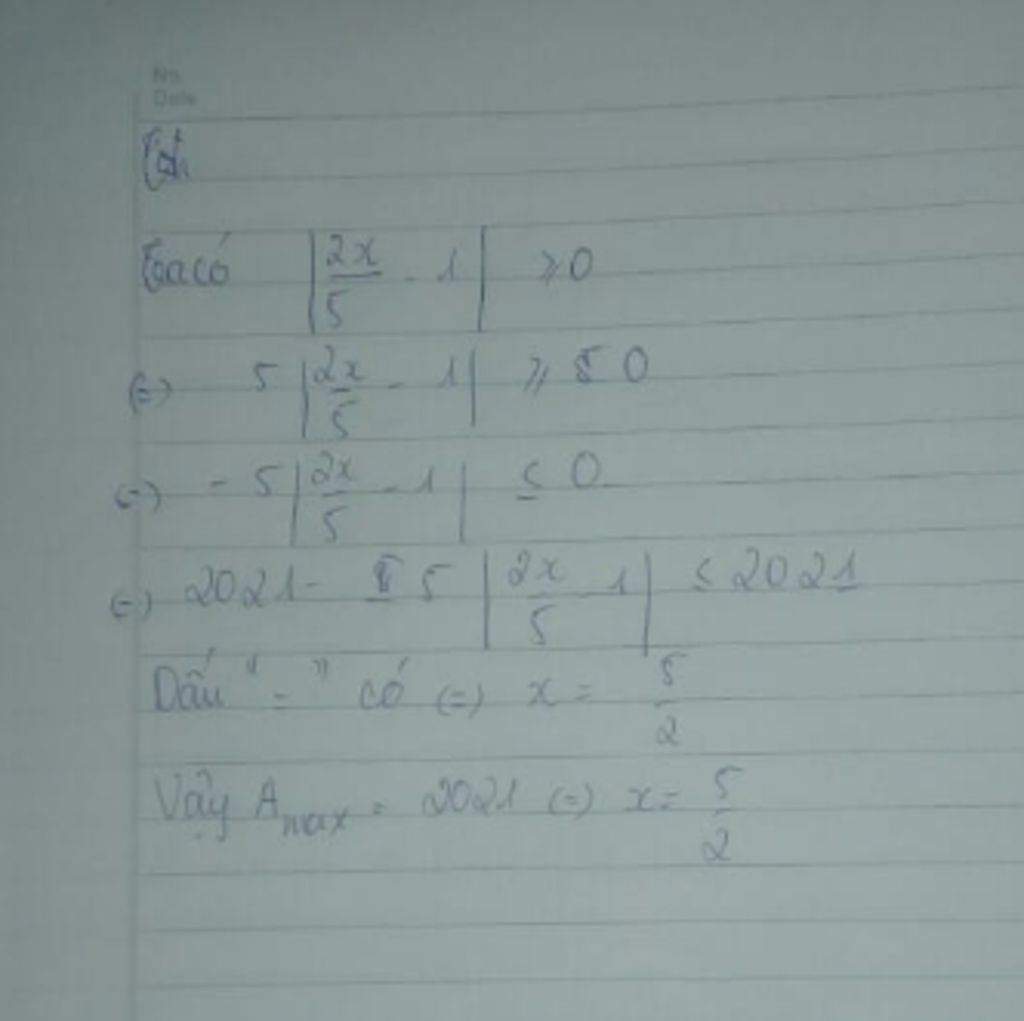 No.
Date
Ta có |2x/5 - 1| ≥ 0
(=) 5 |2x/5 - 1| ≥ 0
(=) - 5 |2x/5 - 1| ≤ 0
(=) 2021 - 5 |2x/5 - 1| ≤ 2021
Dấu " = " có (=) x = 5/2
Vậy Amax = 2021 (=) x = 5/2